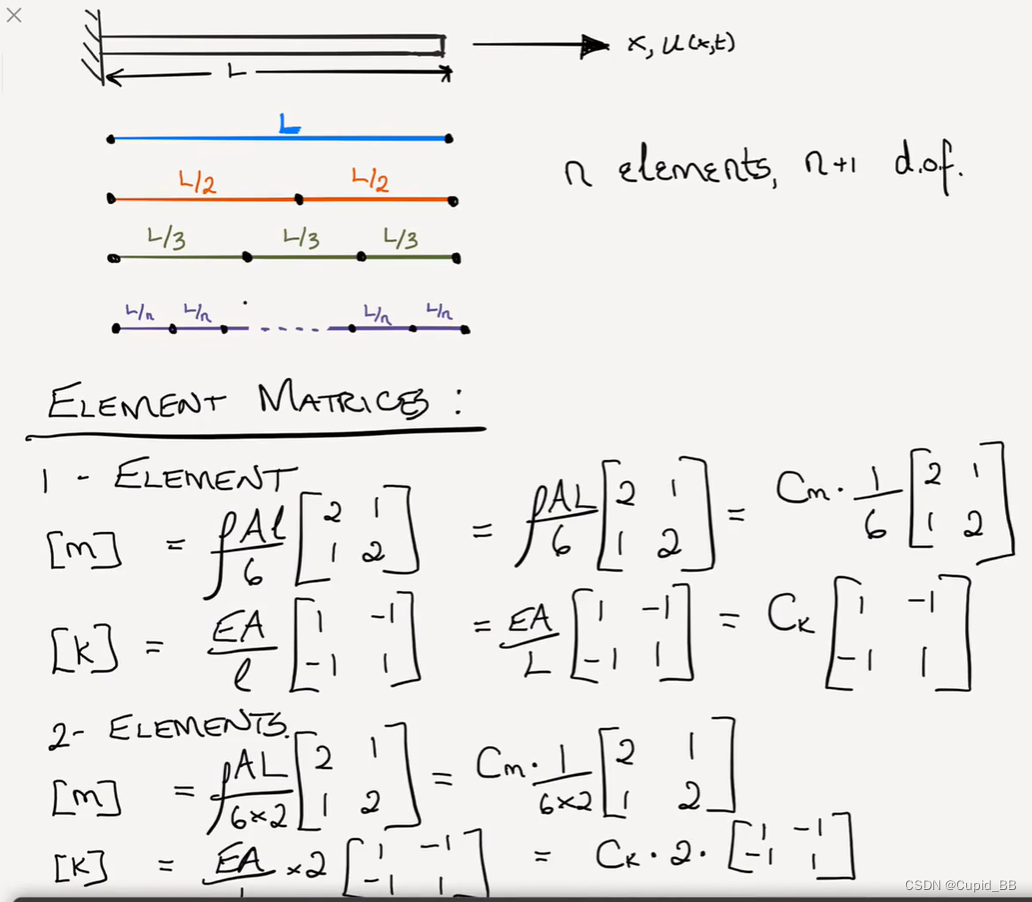 x, u(x,t)
L
L
n elements, n+1 d.o.f.
L/2 L/2
L/3 L/3 L/3
L/n L/n L/n L/n
ELEMENT MATRICES :
1 - ELEMENT
[m] = ρAl/6 [2 1; 1 2] = ρAL/6 [2 1; 1 2] = Cm · 1/6 [2 1; 1 2]
[k] = EA/l [1 -1; -1 1] = EA/L [1 -1; -1 1] = CK [1 -1; -1 1]
2- ELEMENTS.
[m] = ρAL/6×2 [2 1; 1 2] = Cm · 1/6×2 [2 1; 1 2]
[k] = EA/L ×2 [1 -1; -1 1] = CK · 2 · [1 -1; -1 1]
CSDN @Cupid_BB